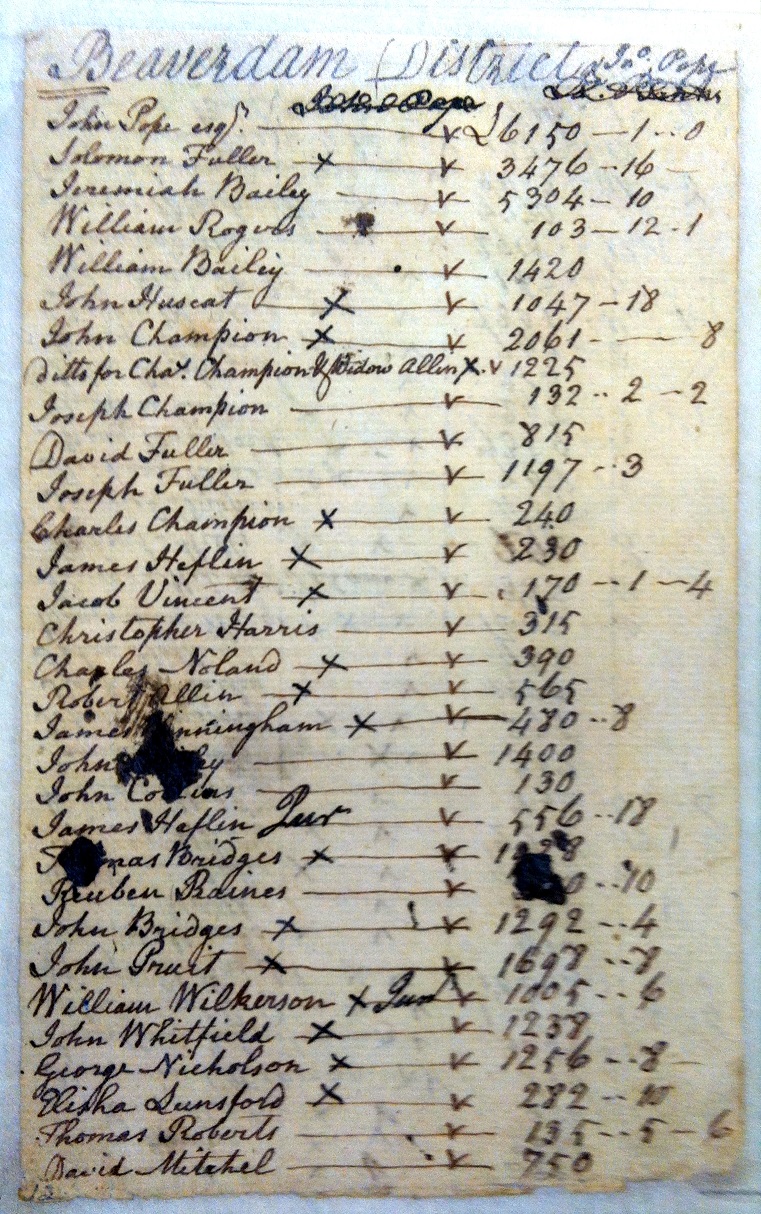 Beaverdam District Jno. Pope
John Pope
John Pope esqr. v £6150 - 1 - 0
Solomon Fuller x v 3476 - 16
Jeremiah Bailey v 5304 - 10
William Rogers v 103 - 12 - 1
William Bailey v 1420
John Huscat x v 1047 - 18
John Champion x v 2061 - - 8
Ditto for Chas. Champion & Widow Allin x v 1225
Joseph Champion v 132 - 2 - 2
David Fuller v 815
Joseph Fuller v 1197 - 3
Charles Champion x v 240
James Heflin x v 230
Jacob Vincent x v 170 - 1 - 4
Christopher Harris v 315
Charles Noland x v 390
Robert Allin x v 565
James x v 480 - 8
John v 1400
John Collins v 130
James Heflin Jur v 556 - 18
Bridges x v
Reuben Raines v - 10
John Bridges x v 1292 - 4
John Pruit x v 1698 - 8
William Wilkerson x Junr v 1005 - 6
John Whitfield x v 1238
George Nicholson x v 1256 - 8
Elisha Lunsford x v 282 - 10
Thomas Roberts v 135 - 5 - 6
David Mitchel v 750